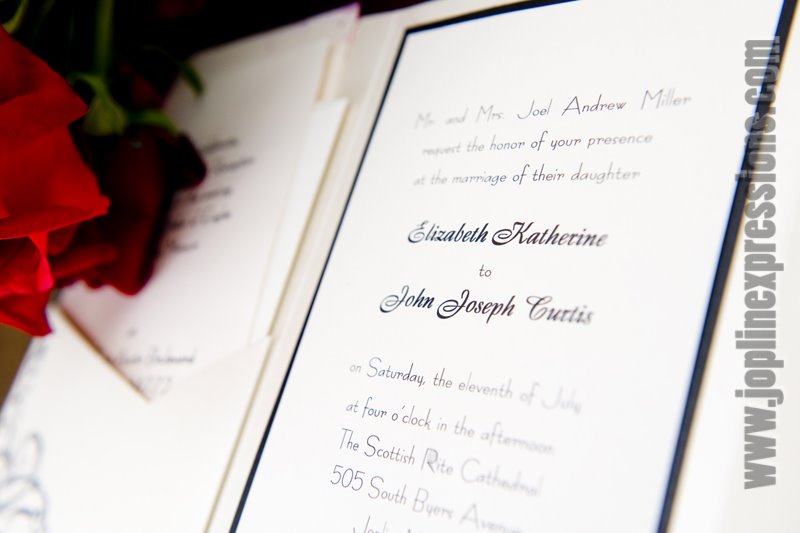 Mr. and Mrs. Joel Andrew Miller
request the honor of your presence
at the marriage of their daughter
Elizabeth Katherine
to
John Joseph Curtis
on Saturday, the eleventh of July
at four o'clock in the afternoon
The Scottish Rite Cathedral
505 South Byers Avenue
www.joplinexpressions.com